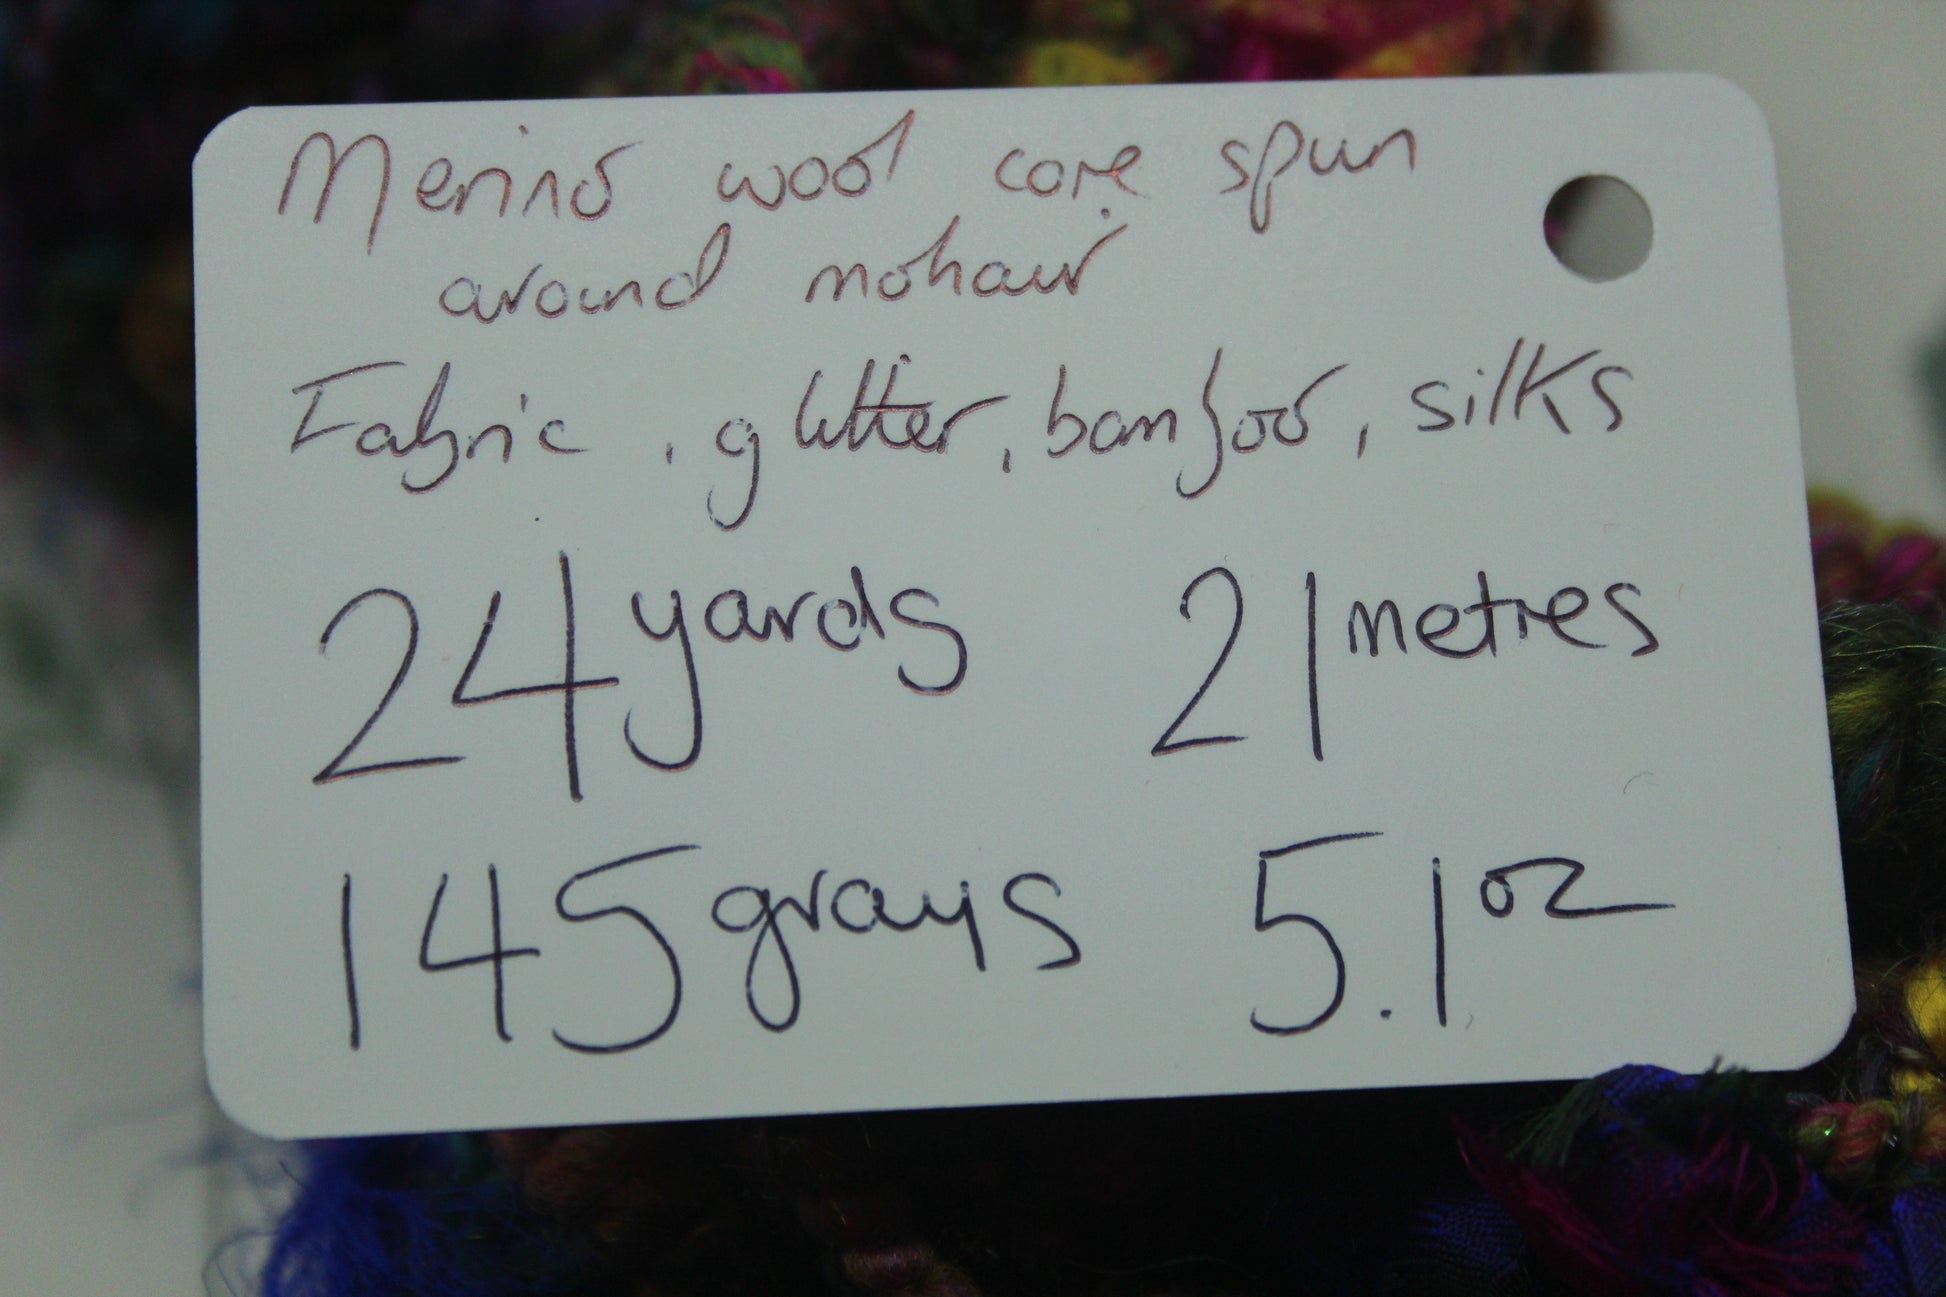 Merino wool core spun
around mohair
Fabric, glitter, bamboo, silks
24 yards 21 metres
145 grams 5.1 oz